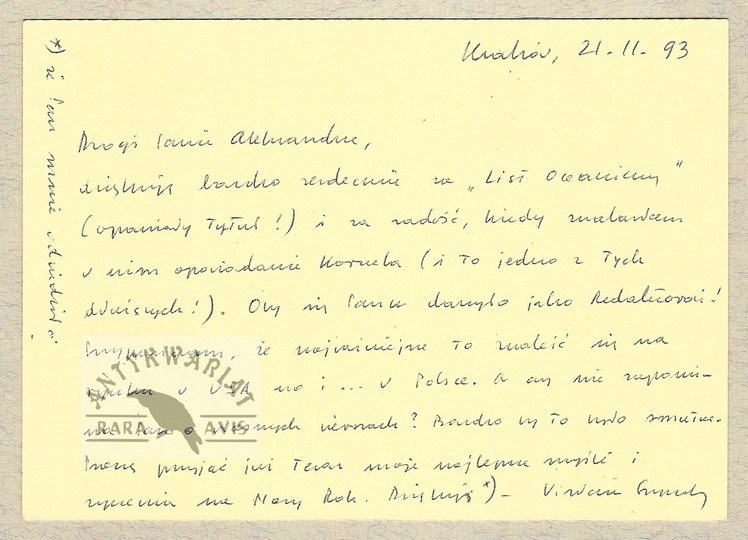 Kraków, 21.11.93
Drogi Panie Aleksandrze,
dziękuję bardzo serdecznie za „List Oceaniczny”
(wspaniały tytuł!) i za radość, kiedy znalazłam
w nim opowiadanie Kornela (i to jedno z tych
dziwnych!). Oby się Panu darzyło jako Redaktorowi!
Przypuszczam, że najważniejsze to znaleźć się na
rynku w USA, no i ... w Polsce. A czy nie zapomi-
na Pan o własnych wierszach? Bardzo by to było smutne.
Proszę przyjąć już teraz moje najlepsze myśli i
życzenia na Nowy Rok. Dziękuję*) –
*) że Pan mnie odwiedził
ANTYKWARIAT
RARA AVIS